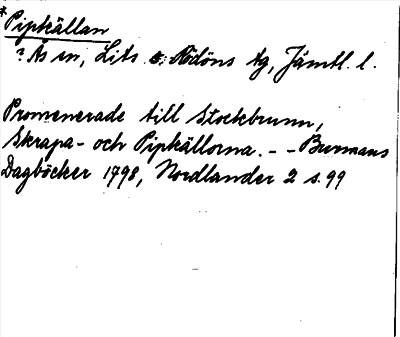 * Pipkällan
? Ås sn, Lits o. Rödöns tg, Jämtl. l.
Promenerade till Stockbrunn,
Skrapa- och Pipkällorna. - - Burmans
Dagböcker 1798, Nordlander 2 s. 99